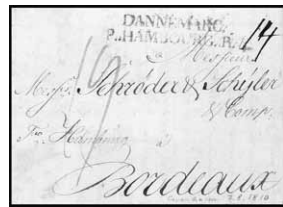 DANNEMARC,
P. HAMBOURG. R. 4.
14
à Messieurs
Messrs. Schröder & Schÿler
& Comp.
à
Bordeaux
7.8.1810